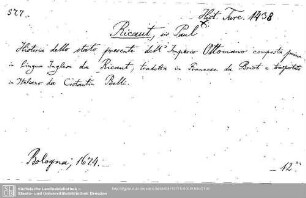 527. Hist. Turc. 1438
Ricaut, Paul
Historia dello stato presente dell' Imperio Ottomano composta prima
in lingua Inglese da Ricaut, tradotta in Francese da Briot e trasportata
in Italiano da Costantin Belli.
Bologna, 1674. 12°